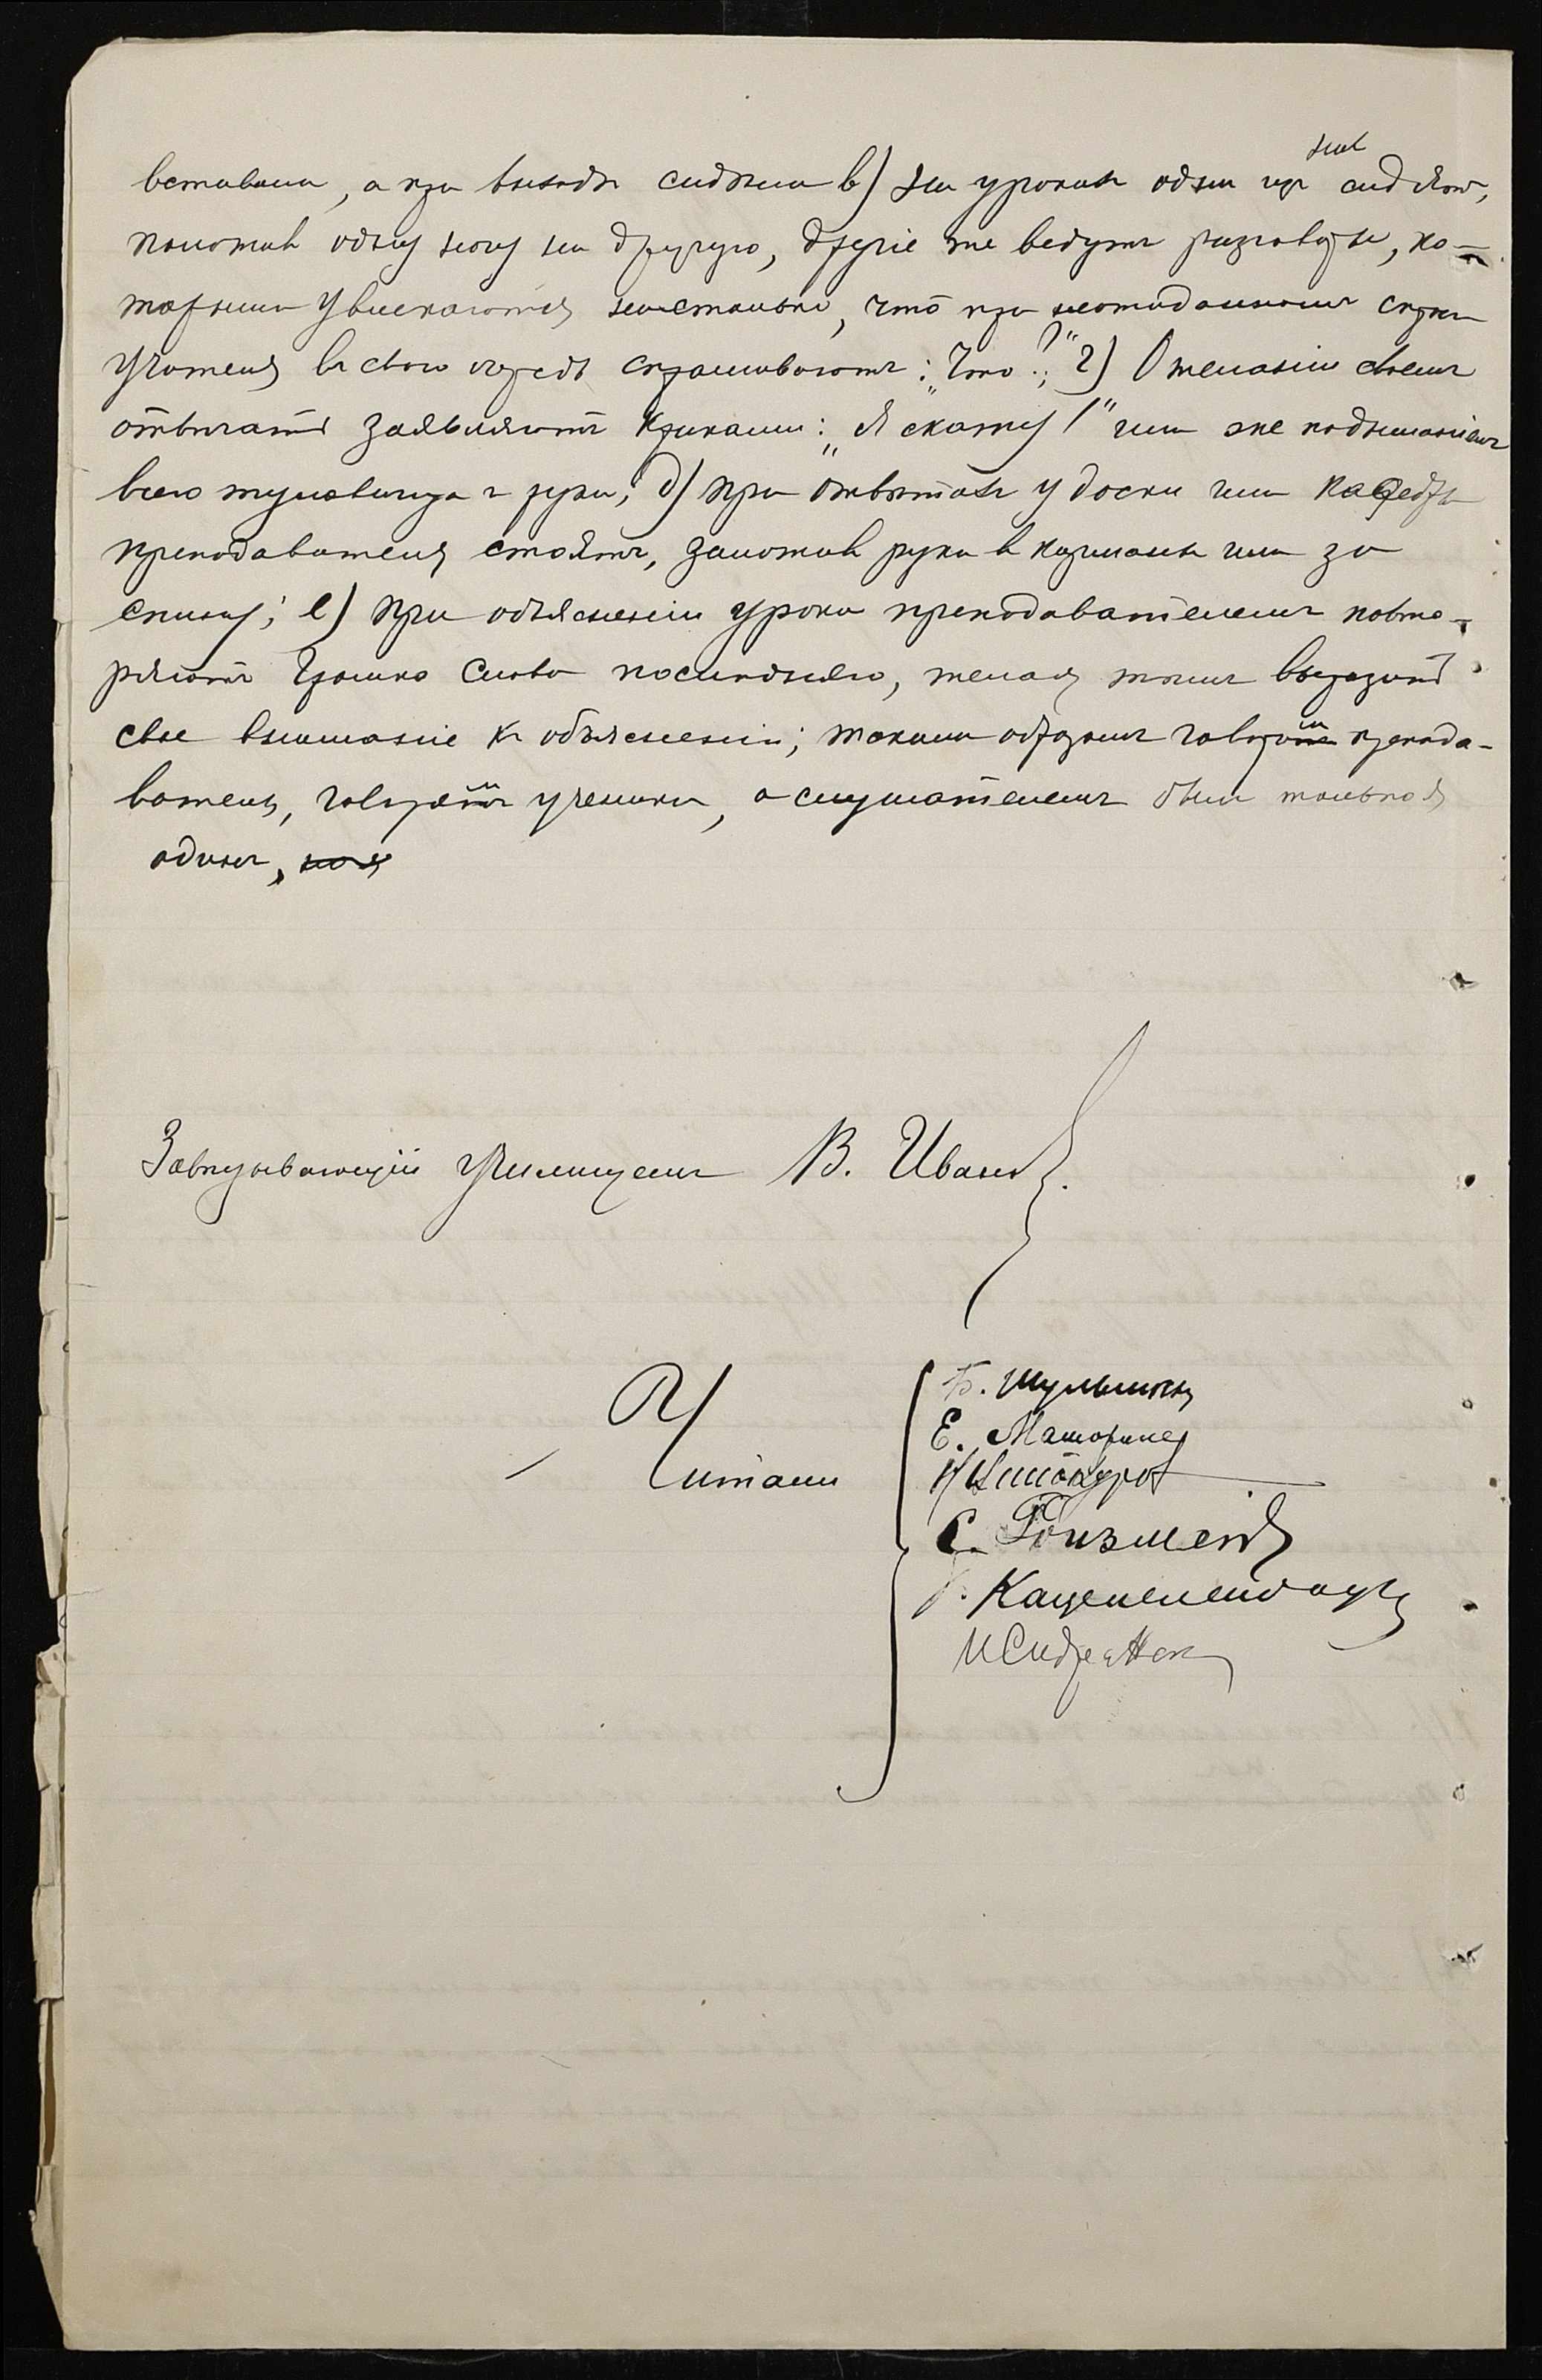 нихъ
вставали, а при выходѣ сидѣли в) На урокахъ одни изъ сидятъ,
положивъ одну ногу на другую, другіе же ведутъ разговоры, ко-
торыми увлекаются настолько, что при неожиданномъ спросѣ
учителя въ свою очередь спрашиваютъ: „Что?“; г) О желаніи своемъ
отвѣчать заявляютъ криками: „Я скажу!“ или же подниманіемъ
всего туловища и руки; д) При отвѣтахъ у доски или каѳедры
преподавателя стоятъ, заложивъ руки въ карманы или за
спину; е) При объясненіи урока преподавателемъ повто-
ряютъ громко слова послѣдняго, желая этимъ выразить
свое вниманіе къ объясненію; такимъ образомъ говорилъ препода-
ватель, говорили ученики, а слушателемъ былъ только я
одинъ, но я
Завѣдывающій училищемъ В. Ивановъ.
Читали
Б. Шульманъ
Е.
С. Гойзманъ
Каценеленбогенъ
И Сидре